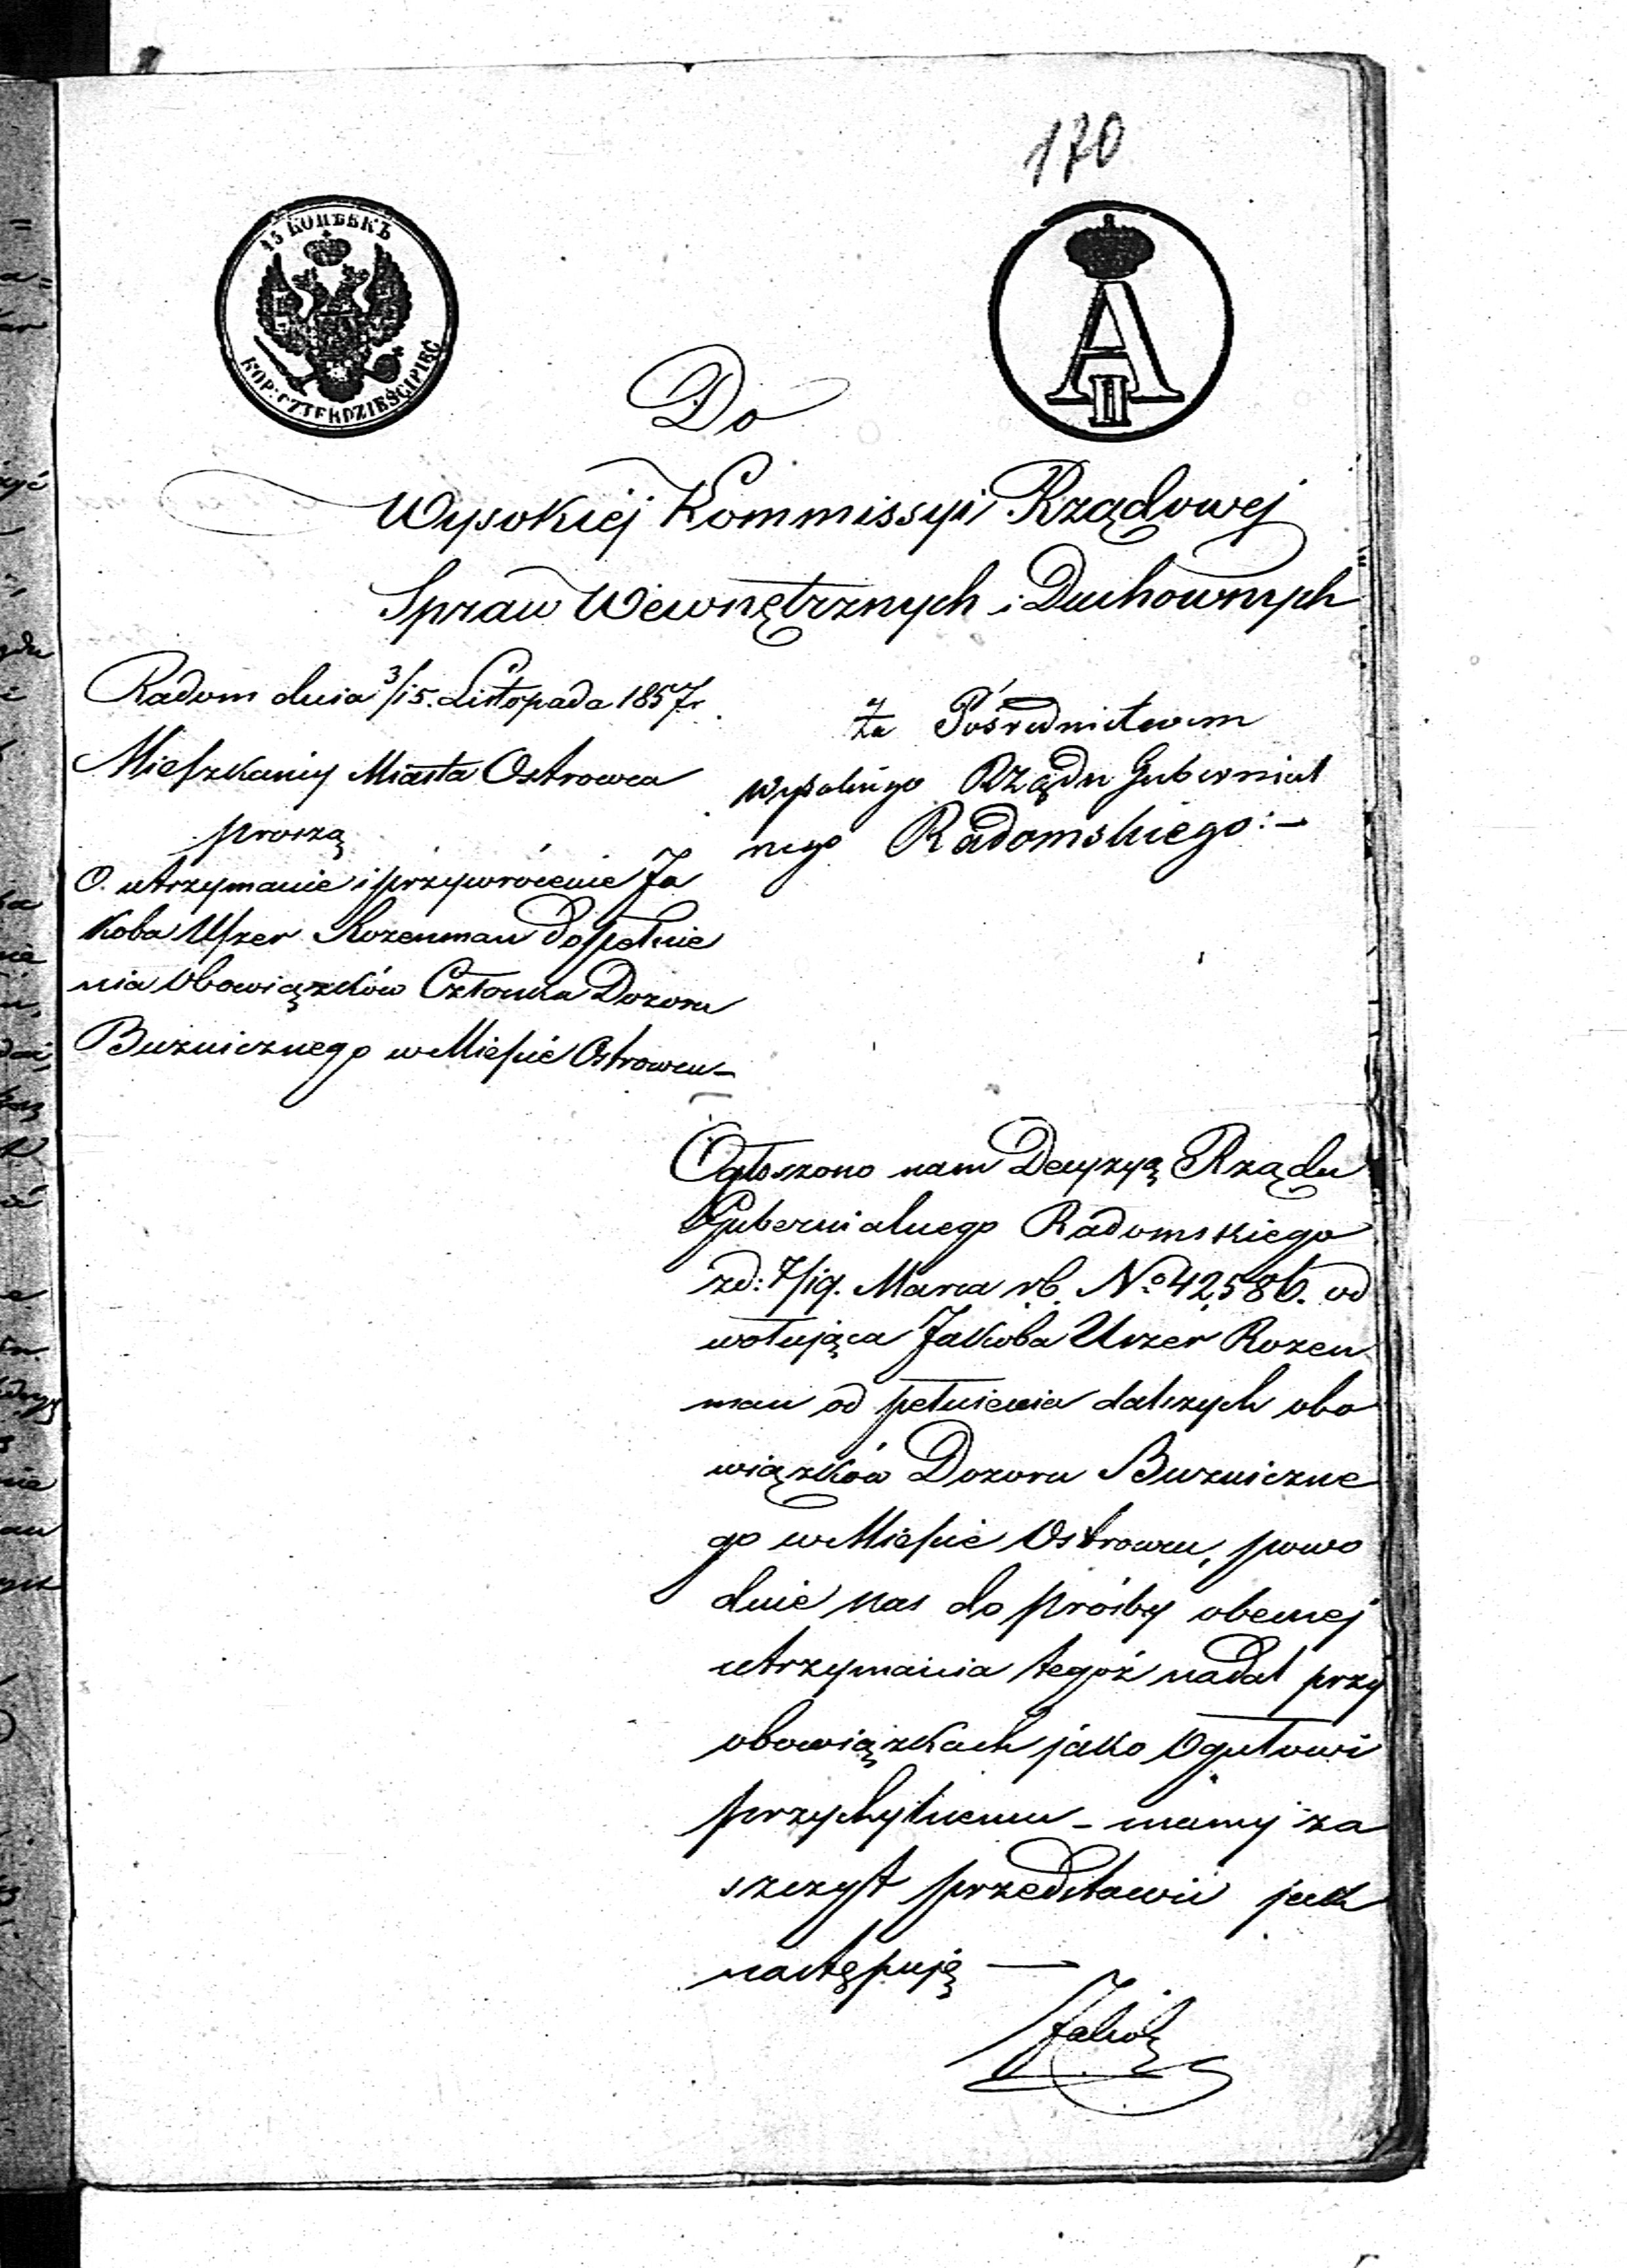 170
45 КОПѢЕКЪ
KOP: CZTERDZIEŚCI PIĘĆ
A II
Do
Wysokiéj Kommissyi Rządowej
Spraw Wewnętrznych i Duchownych
Radom dnia 3/15. Listopada 1857r.
Mieszkańcy Miasta Ostrowca
proszą
O utrzymanie i przywrócenie Ja
koba Uszer Rozenman do pełnie
nia Obowiązków Członka Dozoru
Buźnicznego w Mieście Ostrowcu –
za Pośrednictwem
wysokiego Rządu Gubernial
nego Radomskiego: –
Ogłoszono nam Decyzyą Rządu
Gubernialnego Radomskiego
zd: 7/19. Marca rb. No 42,586. od
wołująca Jakóba Uszer Rozen
man od pełnienia dalszych obo
wiązków Dozoru Buzniczne
go w Mieście Ostrowcu, powo
duie nas do prośby obecnej
utrzymania tegóż nadal przy
obowiązkach jako Ogułowi
przychylnemu – mamy za
szczyt przedstawić jak
następują —
Jakób